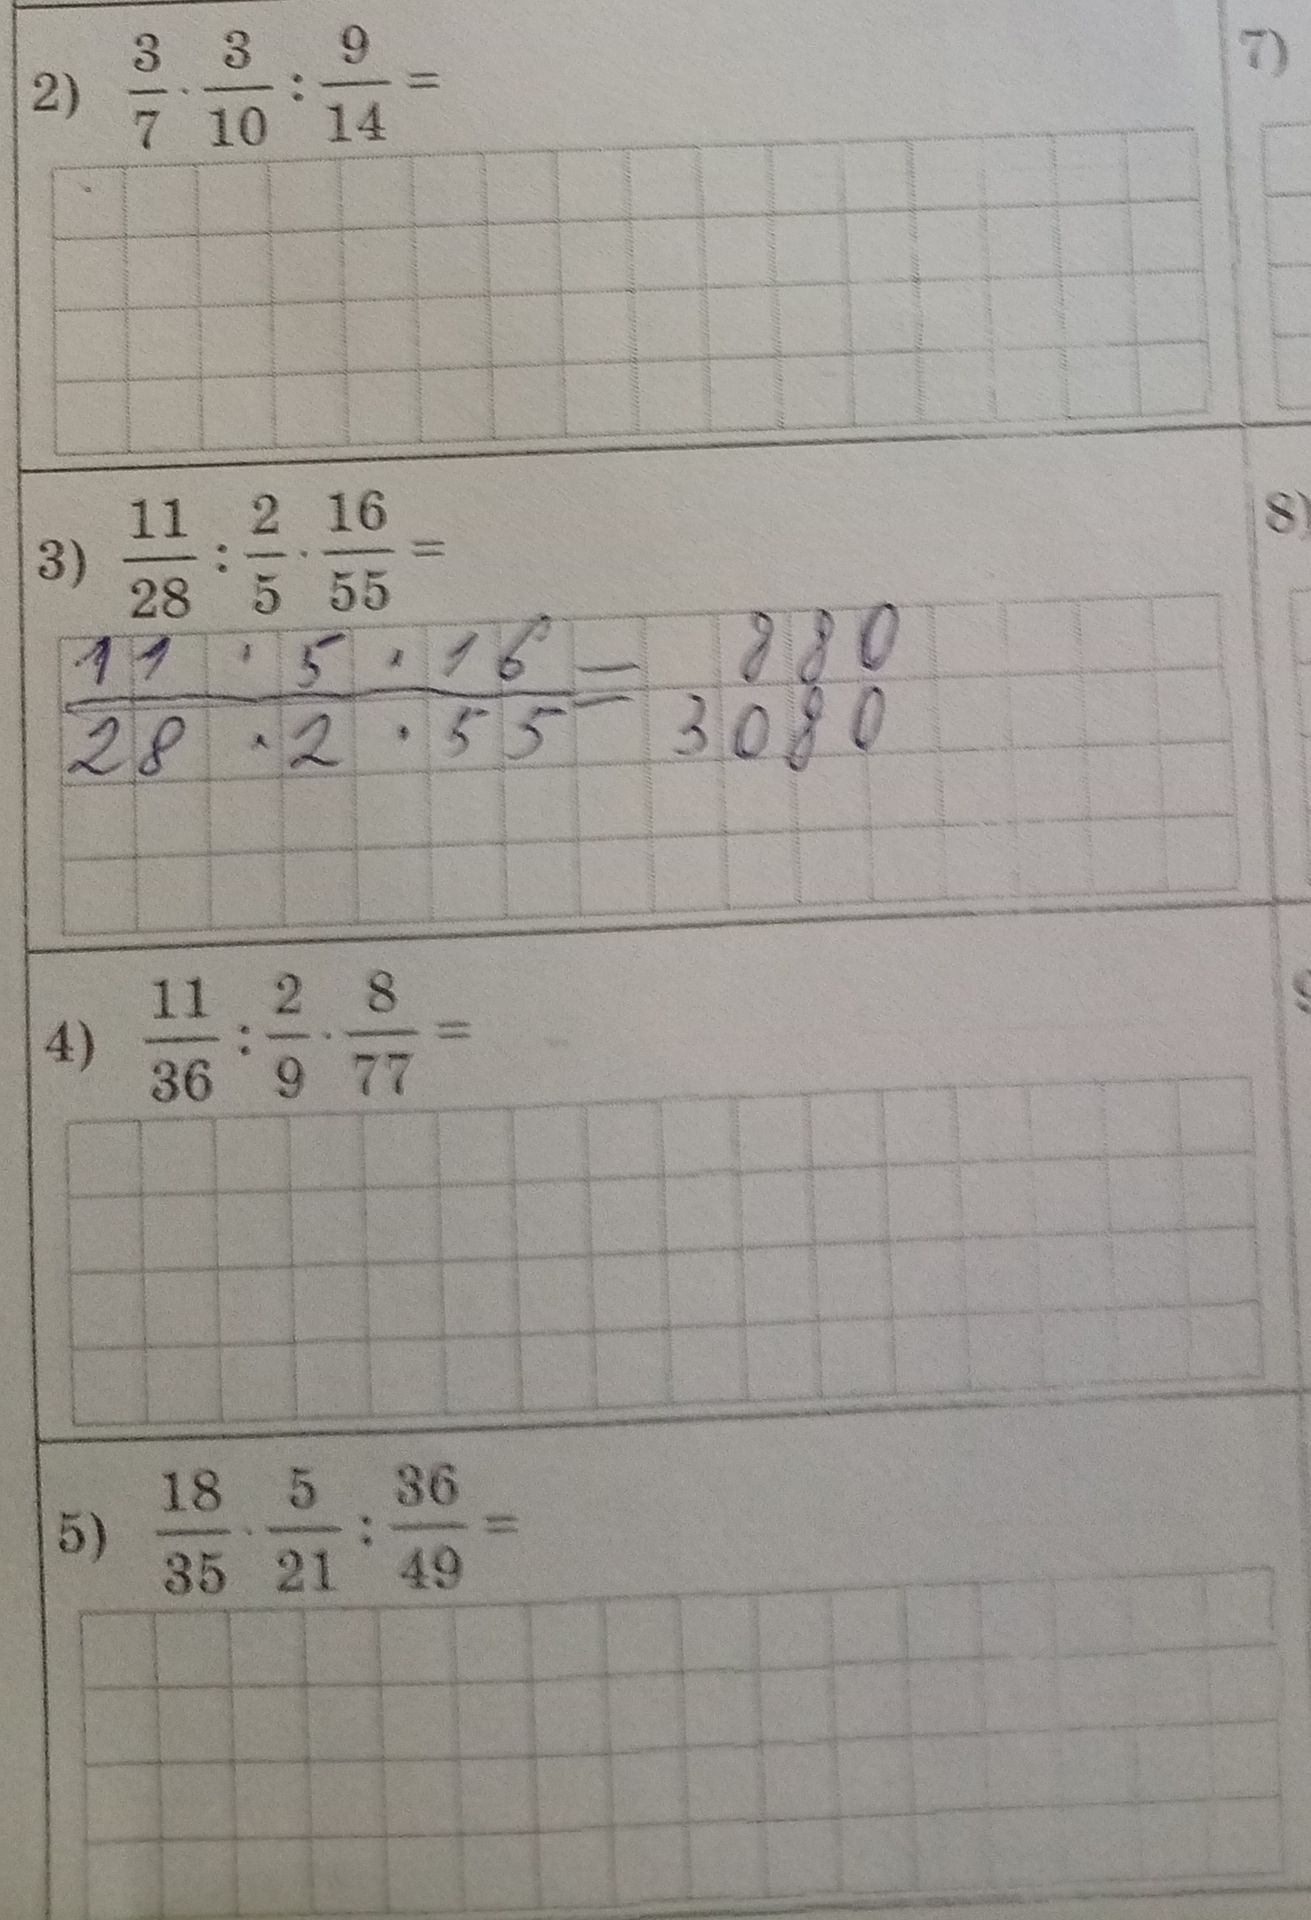 2) 3/7 · 3/10 : 9/14 =
7)
3) 11/28 : 2/5 · 16/55 =
8)
11 · 5 · 16 / 28 · 2 · 55 = 880 / 3080
4) 11/36 : 2/9 · 8/77 =
5) 18/35 · 5/21 : 36/49 =